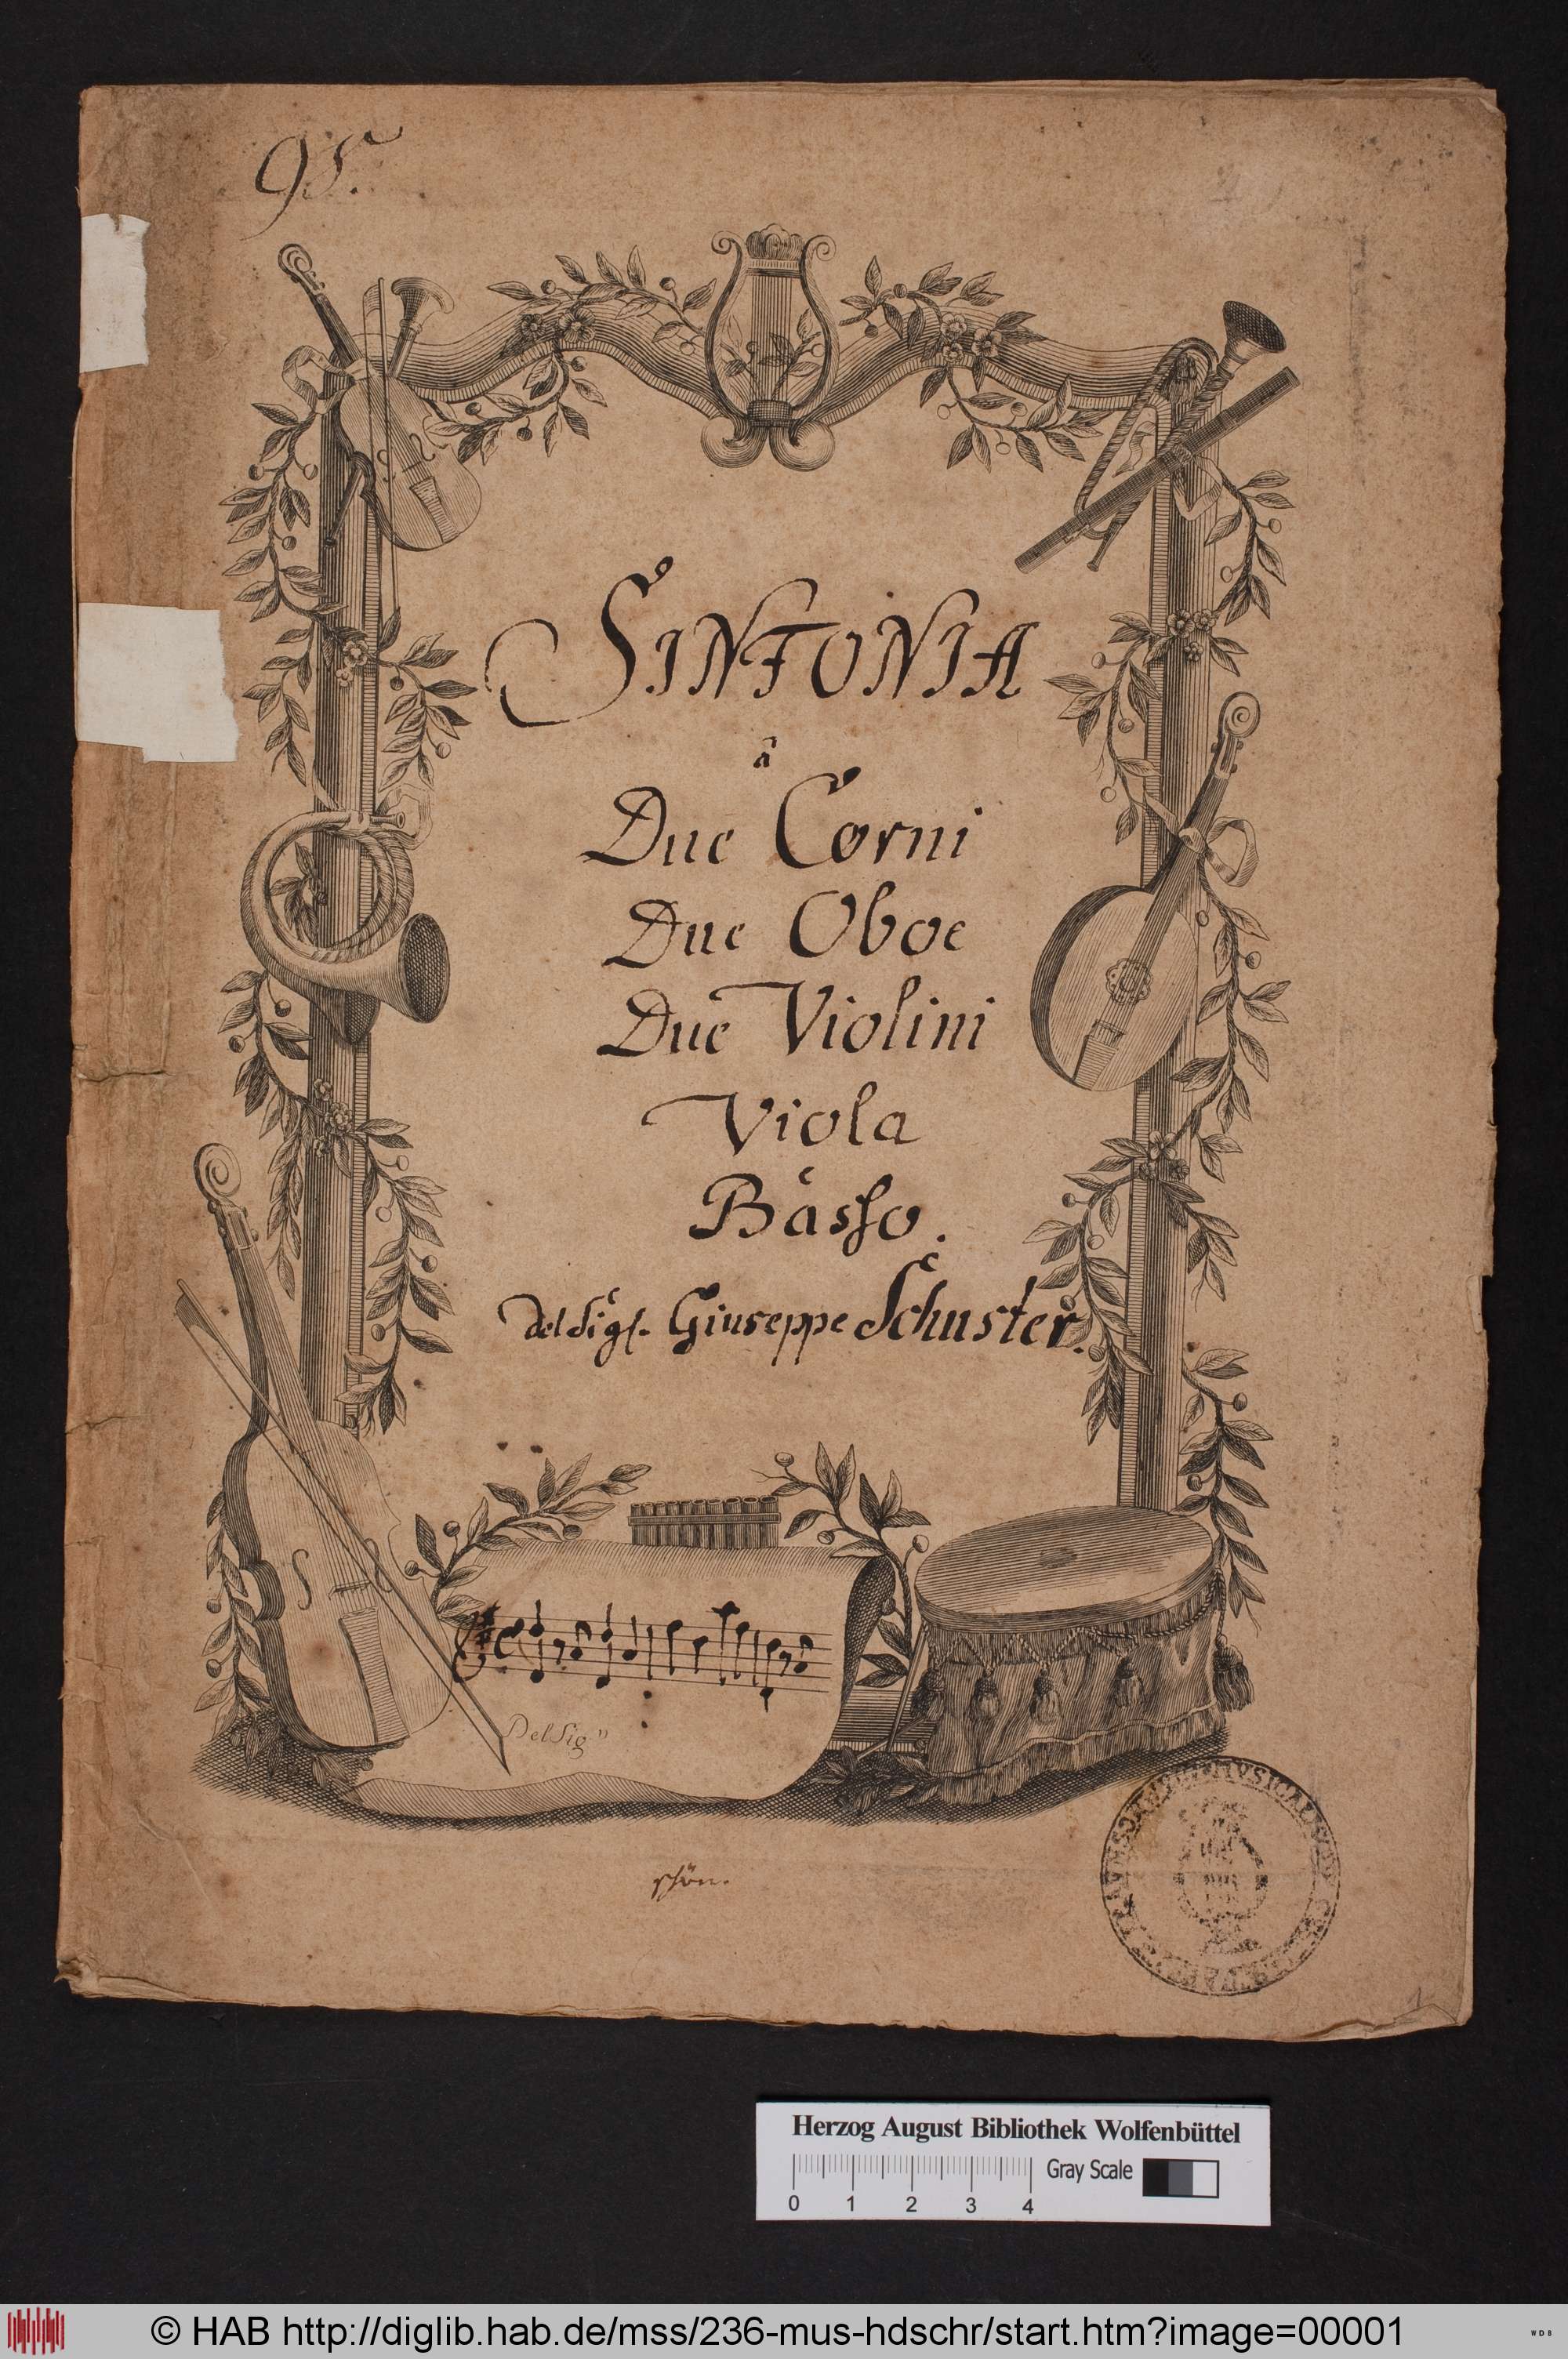 95.
SINFONIA
â
Due Corni
Due Oboe
Due Violini
Viola
Basso.
del Sigr. Giuseppe Schuster.
Del Sig"
schön.
1
Herzog August Bibliothek Wolfenbüttel
Gray Scale
0 1 2 3 4
© HAB http://diglib.hab.de/mss/236-mus-hdschr/start.htm?image=00001
WDB